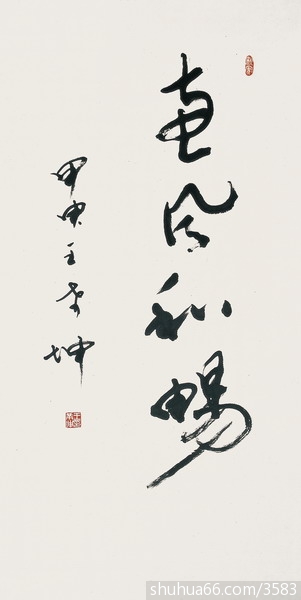 惠风和畅
甲申王学坤
shuhua66.com/3583